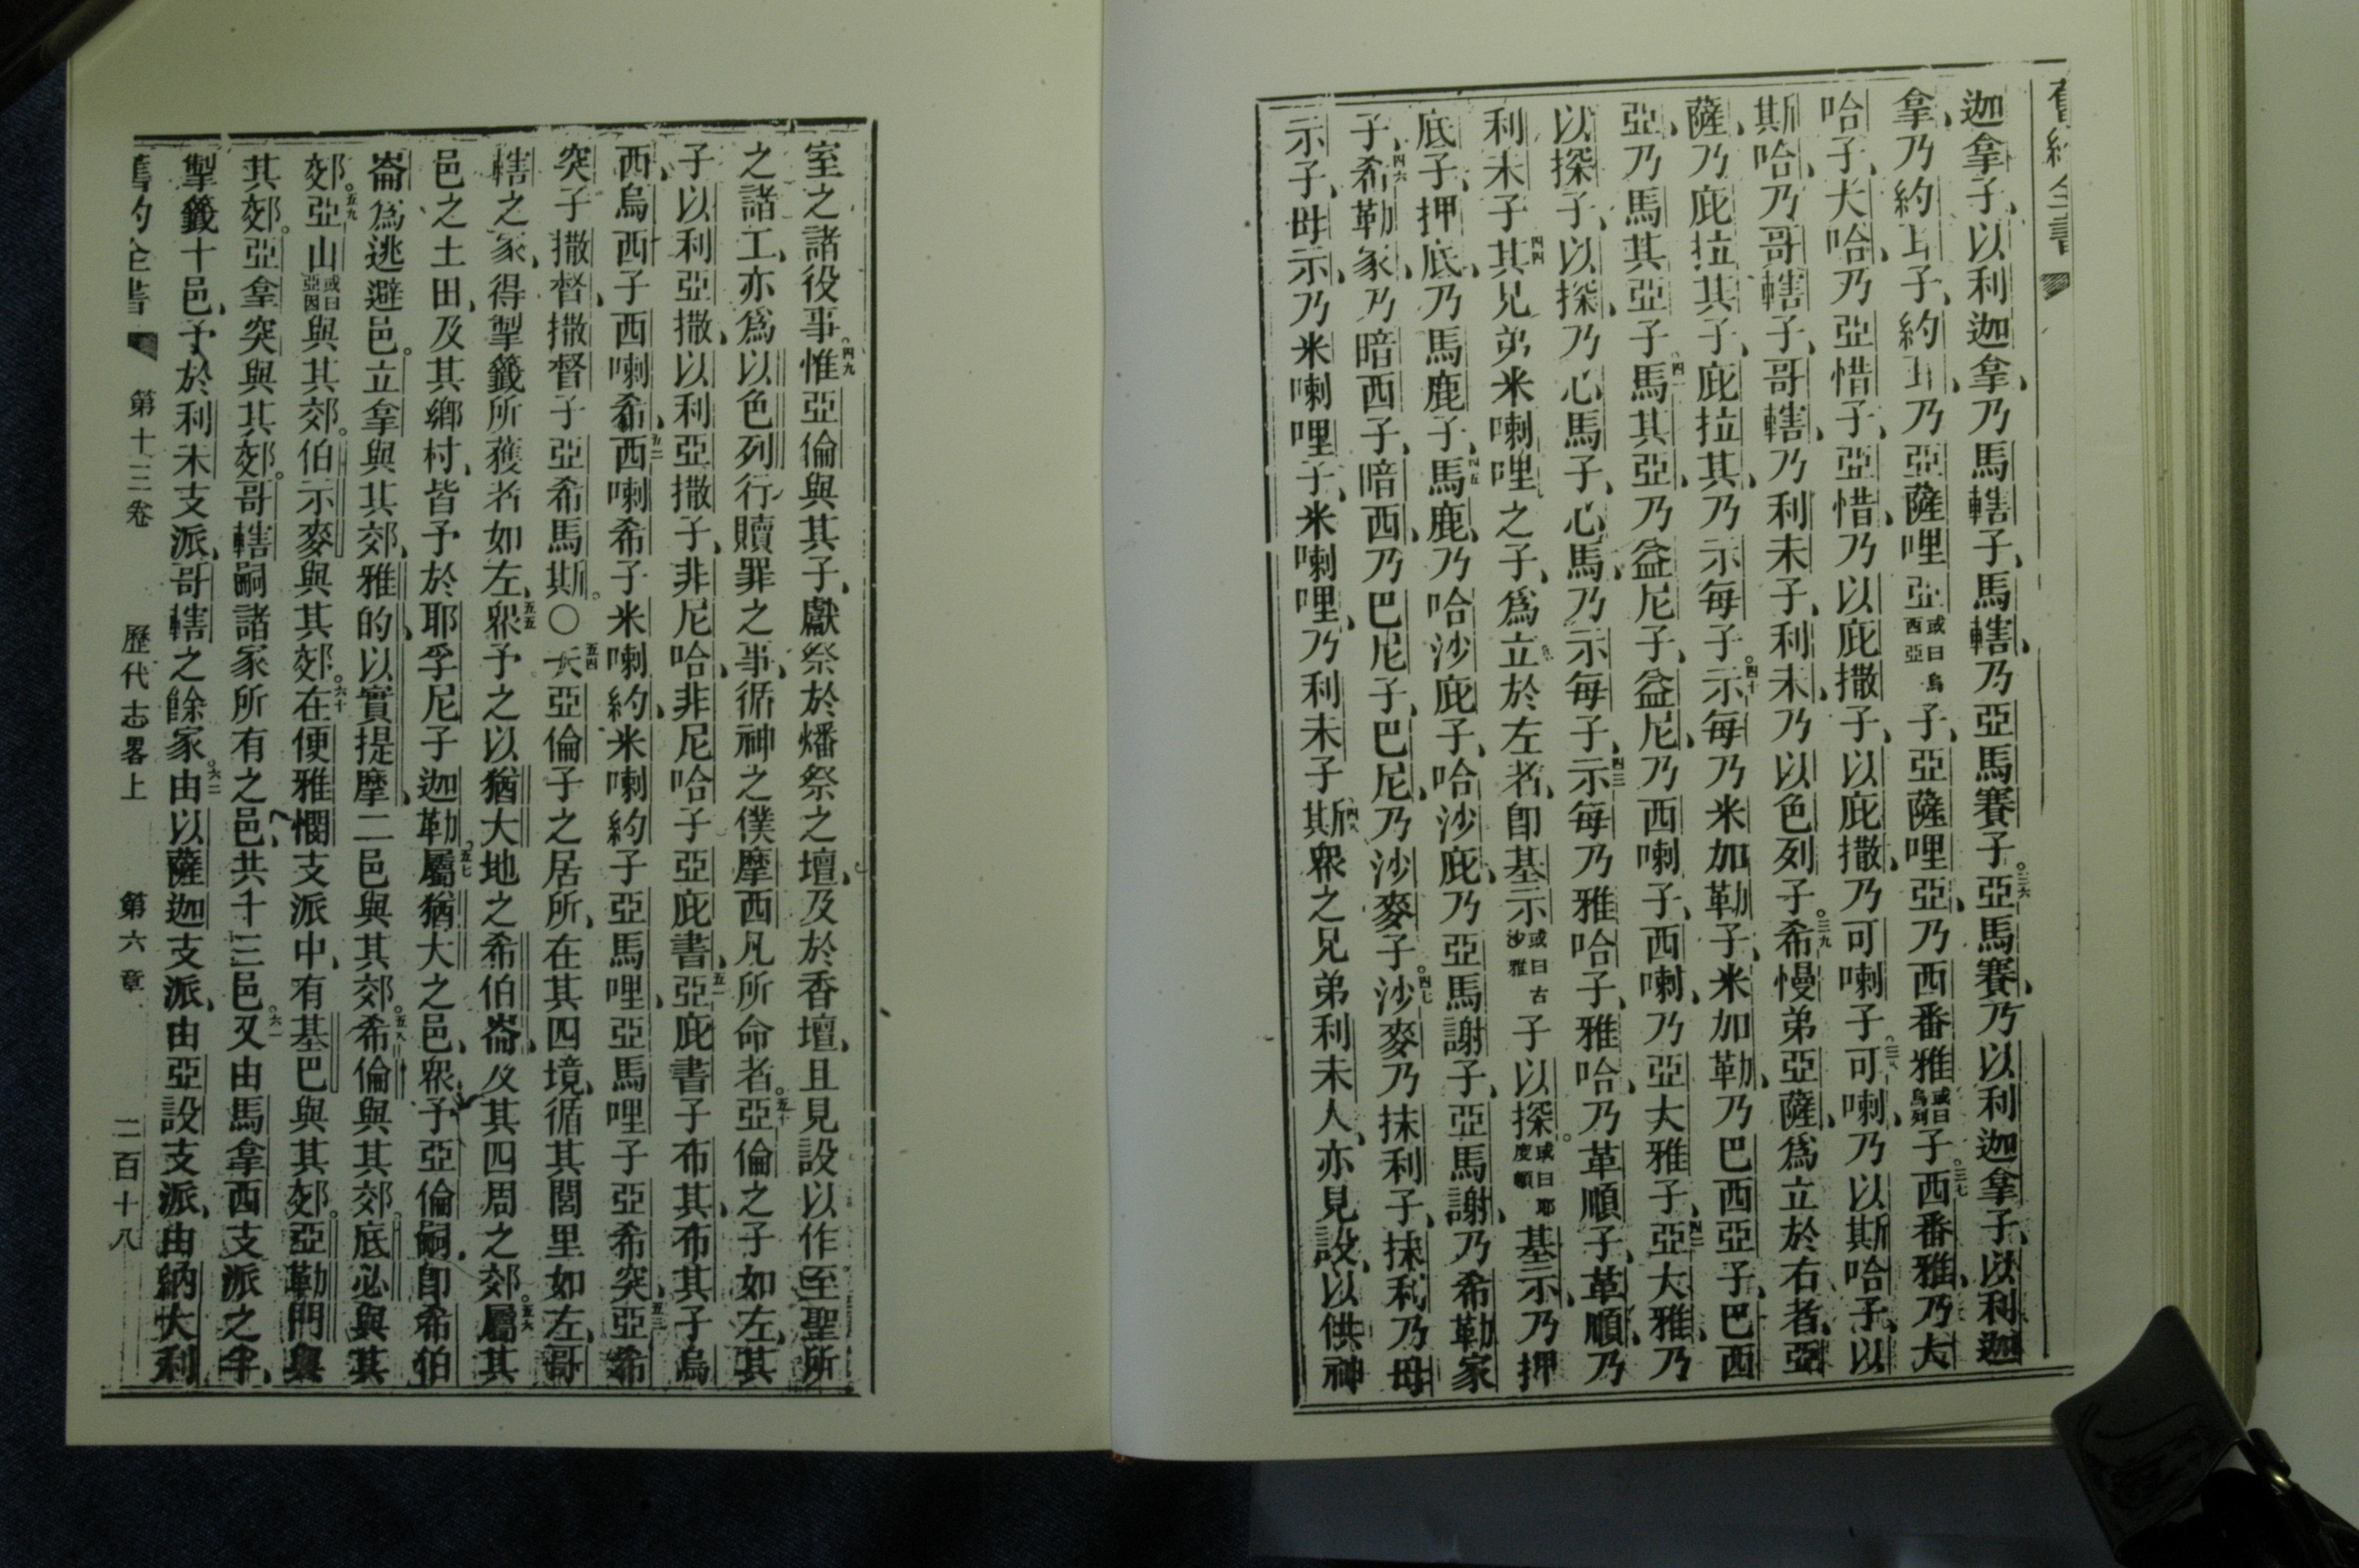 舊約全書
迦拿子、以利迦拿、乃馬轄子、馬轄、乃亞馬賽子。三六亞馬賽、乃以利迦拿子、以利迦
拿、乃約耳子、約耳、乃亞薩哩亞或曰烏西亞子、亞薩哩亞、乃西番雅或曰烏列子。三七西番雅、乃大
哈子、大哈、乃亞惜子、亞惜、乃以庇撒子、以庇撒、乃可喇子。三八可喇、乃以斯哈子、以
斯哈、乃哥轄子、哥轄、乃利未子、利未、乃以色列子。三九希慢弟亞薩、爲立於右者、亞
薩、乃庇拉其子、庇拉其、乃示每子。四十示每、乃米加勒子、米加勒、乃巴西亞子、巴西
亞、乃馬其亞子。四一馬其亞、乃益尼子、益尼、乃西喇子、西喇、乃亞大雅子、四二亞大雅、乃
以探子、以探、乃心馬子、心馬、乃示每子、四三示每、乃雅哈子、雅哈、乃革順子、革順、乃
利未子。四四其兄弟米喇哩之子、爲立於左者、卽基示或曰古沙雅子以探。或曰耶度頓基示、乃押
底子、押底、乃馬鹿子、四五馬鹿、乃哈沙庇子、哈沙庇、乃亞馬謝子、亞馬謝、乃希勒家
子、四六希勒家、乃暗西子、暗西、乃巴尼子、巴尼、乃沙麥子。四七沙麥、乃抹利子、抹利、乃母
示子、母示、乃米喇哩子、米喇哩、乃利未子。四八斯衆之兄弟利未人、亦見設、以供神
室之諸役事。四九惟亞倫與其子、獻祭於燔祭之壇、及於香壇、且見設以作至聖所
之諸工、亦爲以色列行贖罪之事、循神之僕摩西凡所命者。五十亞倫之子如左、其
子以利亞撒、以利亞撒子、非尼哈、非尼哈子亞庇書、五一亞庇書子布其、布其子烏
西、烏西子西喇希、五二西喇希子米喇約、米喇約子亞馬哩、亞馬哩子亞希突、五三亞希
突子撒督、撒督子亞希馬斯。〇五四夫亞倫子之居所、在其四境、循其閭里如左、哥
轄之家、得掣籤所獲者如左、五五衆予之以猶大地之希伯崙、及其四周之郊。五六屬其
邑之土田、及其鄉村、皆予於耶孚尼子迦勒、五七屬猶大之邑、衆予亞倫嗣、卽希伯
崙爲逃避邑。立拿與其郊、雅的、以實提摩、二邑與其郊。五八希倫與其郊、底必與其
郊。五九亞山或曰亞因與其郊。伯示麥與其郊。六十在便雅憫支派中、有基巴與其郊。亞勒門與
其郊。亞拿突與其郊。哥轄嗣諸家所有之邑、共十三邑。六一又由馬拿西支派之半、
掣籤十邑、予於利未支派、哥轄之餘家。六二由以薩迦支派、由亞設支派、由納大利
舊約全書 第十三卷 歷代志畧上 第六章 二百十八